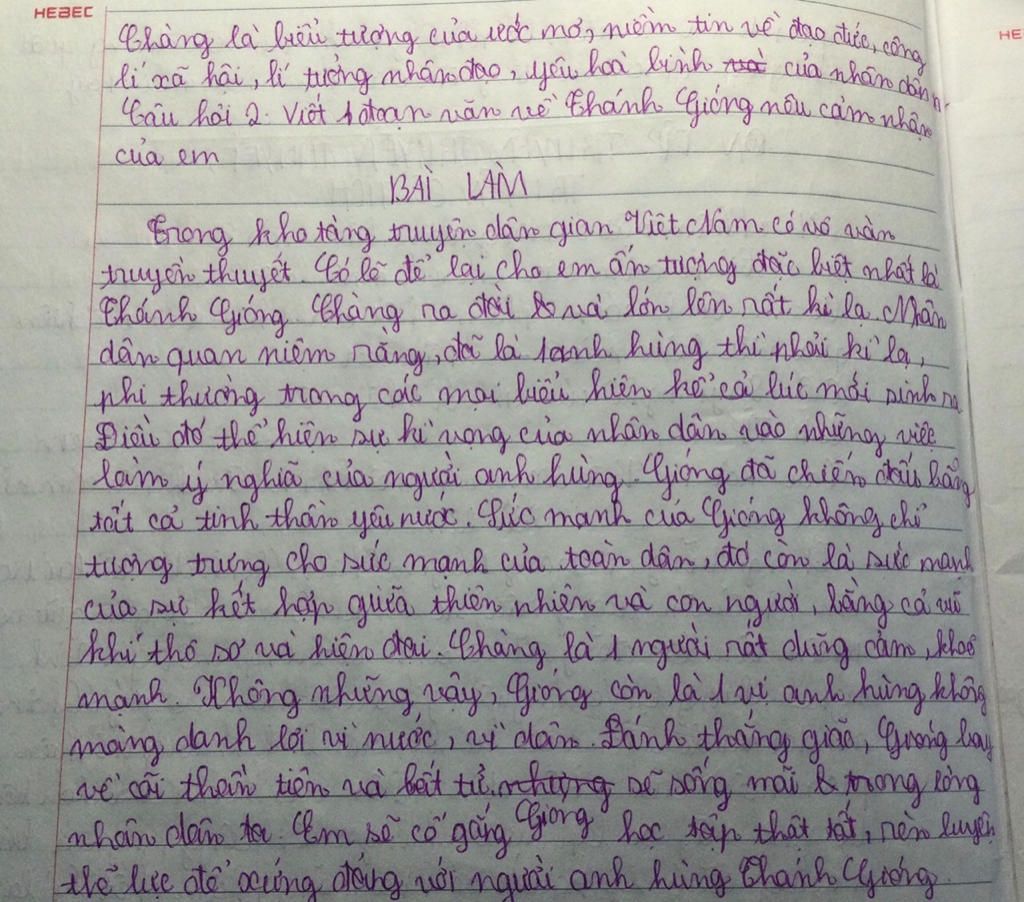 HEBEC
HE
Chàng là biểu tượng của ước mơ, niềm tin về đạo đức, công
lí xã hội, lí tưởng nhân đạo, yêu hoà bình của nhân dân
Câu hỏi 2. Viết 1 đoạn văn về Thánh Gióng nêu cảm nhận
của em
BÀI LÀM
Trong kho tàng truyện dân gian Việt Nam có vô vàn
truyền thuyết. Có lẽ để lại cho em ấn tượng đặc biệt nhất là
Thánh Gióng. Chàng ra đời & và lớn lên rất kì lạ. Nhân
dân quan niệm rằng, đã là 1 anh hùng thì phải kì lạ,
phi thường trong các mọi biểu hiện kể cả lúc mới sinh ra
Điều đó thể hiện sự kì vọng của nhân dân vào những việc
làm ý nghĩa của người anh hùng. Gióng đã chiến đấu bằng
tất cả tinh thần yêu nước. Sức mạnh của Gióng không chỉ
tượng trưng cho sức mạnh của toàn dân, đó còn là sức mạnh
của sự kết hợp giữa thiên nhiên và con người, bằng cả vũ
khí thô sơ và hiện đại. Chàng là 1 người rất dũng cảm, khoẻ
mạnh. Không những vậy, Gióng còn là 1 vị anh hùng không
màng danh lợi vì nước, vì dân. Đánh thắng giặc, Gióng bay
về cõi thần tiên và bất tử, nhưng sẽ sống mãi & trong lòng
nhân dân ta. Em sẽ cố gắng Gióng học tập thật tốt, rèn luyện
thể lực để xứng đáng với người anh hùng Thánh Gióng.